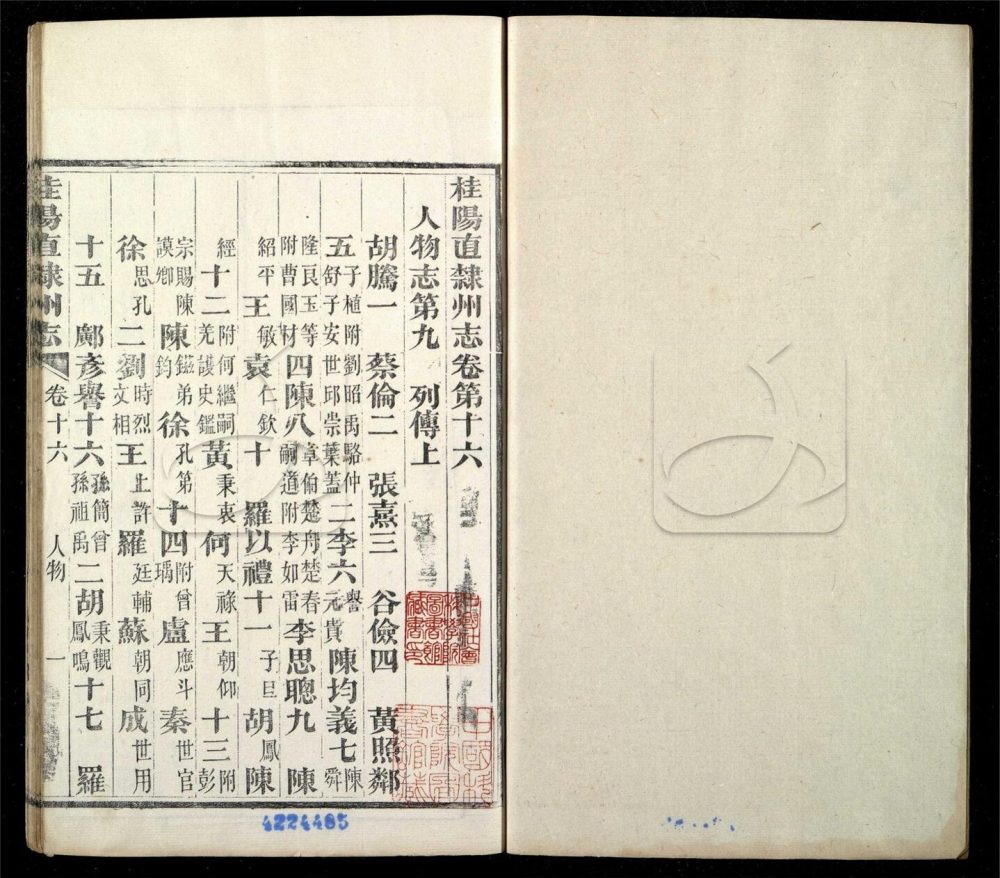 桂陽直隸州志卷第十六
人物志第九　列傳上
胡騰一　蔡倫二　張熹三　谷儉四　黃照鄰
五子植附劉昭禹駱仲舒子安世邱崇葉蓋二李六譽元賁陳均義七陳舜
隆良玉等附曹國材四陳八章伯楚舟楚春嗣道附李如雷李思聰九　陳
紹平王敏袁仁欽十　羅以禮十一　子巨胡鳳陳
經十二附何繼嗣羌謨史鑑黃秉衷何天祿王朝仰十三附彭
宗賜陳謨鄉陳鎡弟鈞徐孔第十四附曾瑀盧應斗秦世官
徐思孔二劉時烈文相王上許羅廷輔蘇朝同成世用
十五　鄺彥譽十六孫簡曾孫祖禹二胡秉觀鳳鳴十七　羅
桂陽直隸州志　卷十六　人物　一
4224485